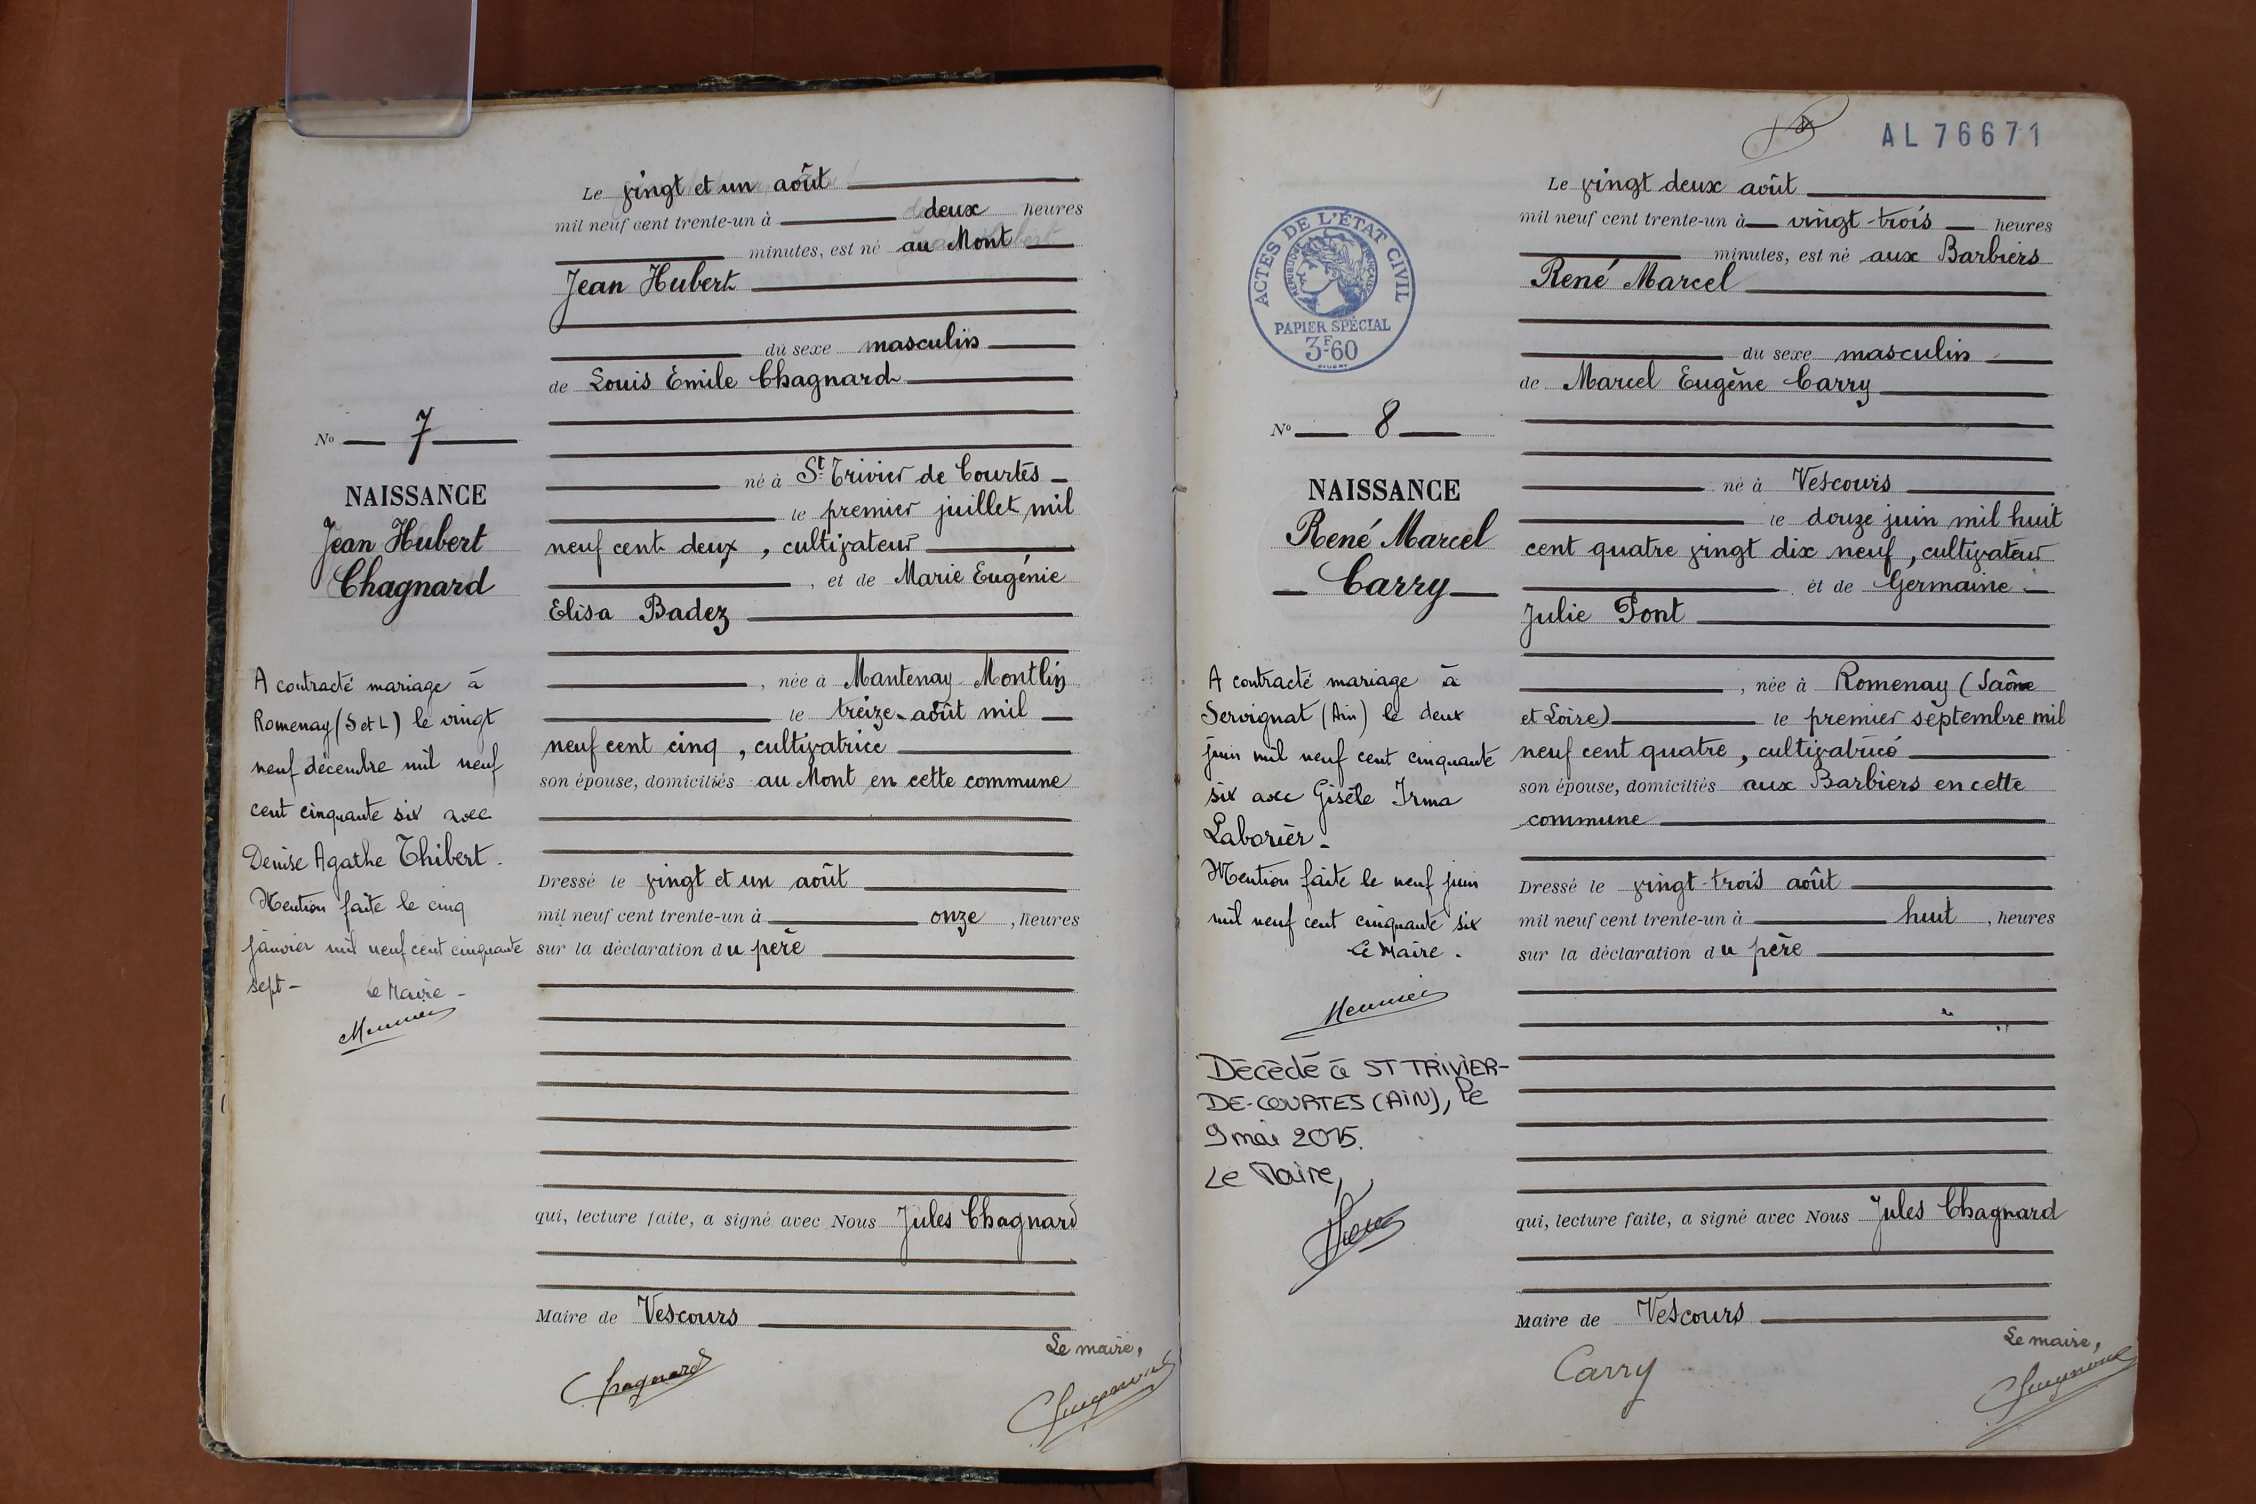 Le vingt et un août
mil neuf cent trente-un à deux heures
minutes, est né au Mont
Jean Hubert
du sexe masculin
de Louis Emile Chagnard
né à St Trivier de Courtes
le premier juillet mil
neuf cent deux, cultivateur
, et de Marie Eugénie
Elisa Badez
, née à Mantenay Montlin
le treize août mil
neuf cent cinq, cultivatrice
son épouse, domiciliés au Mont en cette commune
Dressé le vingt et un août
mil neuf cent trente-un à onze, heures
sur la déclaration du père
qui, lecture faite, a signé avec Nous Jules Chagnard
Maire de Vescours
Le maire,
Chagnard
No 7
NAISSANCE
Jean Hubert
Chagnard
A contracté mariage à
Romenay (S et L) le vingt
neuf décembre mil neuf
cent cinquante six avec
Denise Agathe Thibert.
Mention faite le cinq
janvier mil neuf cent cinquante
sept -
Le Maire -
Meunier
AL 76671
ACTES DE L'ÉTAT CIVIL
RÉPUBLIQUE FRANÇAISE
PAPIER SPÉCIAL
3F60
No 8
NAISSANCE
René Marcel
Carry
A contracté mariage à
Servignat (Ain) le deux
juin mil neuf cent cinquante
six avec Gisèle Irma
Laborier -
Mention faite le neuf juin
mil neuf cent cinquante six
Le Maire.
Meunier
Décédé à ST TRIVIER-
DE-COURTES (AIN), le
9 mai 2015.
Le Maire,
Le vingt deux août
mil neuf cent trente-un à vingt-trois heures
minutes, est né aux Barbiers
René Marcel
du sexe masculin
de Marcel Eugène Carry
né à Vescours
le douze juin mil huit
cent quatre vingt dix neuf, cultivateur
et de Germaine
Julie Pont
, née à Romenay (Saône
et Loire) le premier septembre mil
neuf cent quatre, cultivatrice
son épouse, domiciliés aux Barbiers en cette
commune
Dressé le vingt-trois août
mil neuf cent trente-un à huit, heures
sur la déclaration du père
qui, lecture faite, a signé avec Nous Jules Chagnard
Maire de Vescours
Le maire,
Carry